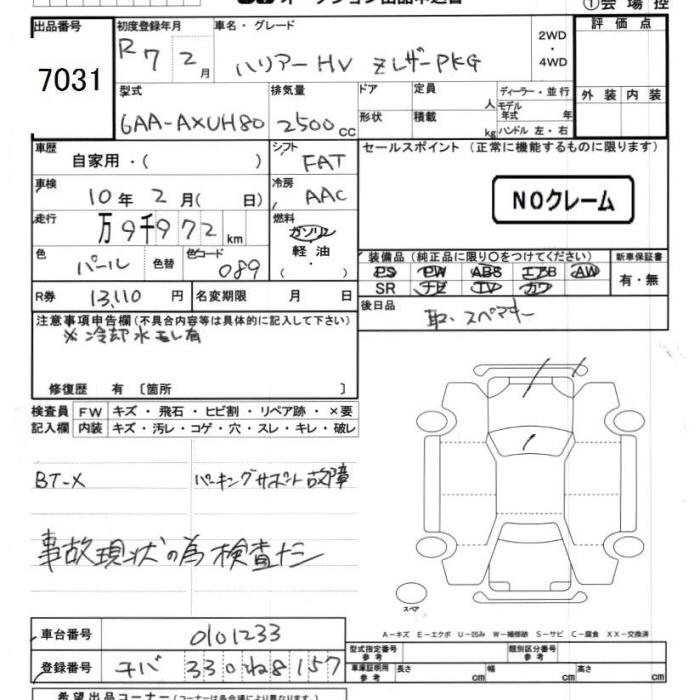 ①会場控
出品番号 初度登録年月 車名・グレード 評価点
7031 R7 2月 ハリアーHV ZレザーPKG 2WD・4WD
型式 排気量 ドア 定員 人 ディーラー・並行 外装 内装
6AA-AXUH80 2500cc 形状 積載 kg モデル年式 年 ハンドル 左・右
車歴 自家用・( ) シフト FAT セールスポイント (正常に機能するものに限ります)
車検 10年2月(日) 冷房 AAC NOクレーム
走行 万9千972km 燃料 ガソリン 軽油 (・)
色 パール 色替 色コード 089 装備品 (純正品に限り○をつけてください) 新車保証書
PS PW ABS エアB AW 有・無
SR ナビ TV カワ
R券 13,110円 名変期限 月 日 後日品
取、スペアキー
注意事項申告欄(不具合内容等は具体的に記入して下さい)
※冷却水モレ有
修復歴 有〔箇所 〕
検査員 FW キズ・飛石・ヒビ割・リペア跡・×要
記入欄 内装 キズ・汚レ・コゲ・穴・スレ・キレ・破レ
BT-X パーキングサポート故障
事故現状の為検査ナシ
スペア
A-キズ E-エクボ U-凹み W-補修跡 S-サビ C-腐食 XX-交換済
車台番号 0101233
型式指定番号 参考 類別区分番号 参考
登録番号 チバ 330ね8157 車庫証明用 参考 長さ cm 幅 cm 高さ cm
希望出品コーナー(コーナーは各会場により異なります)